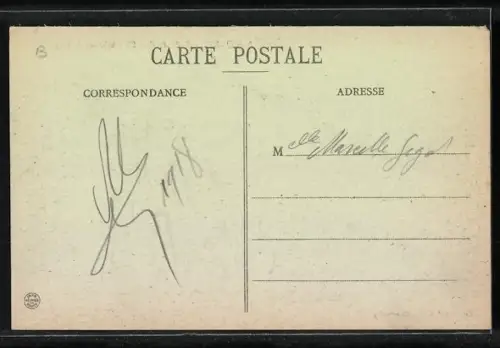 B
CARTE POSTALE
CORRESPONDANCE
ADRESSE
Melle Marcelle
1918